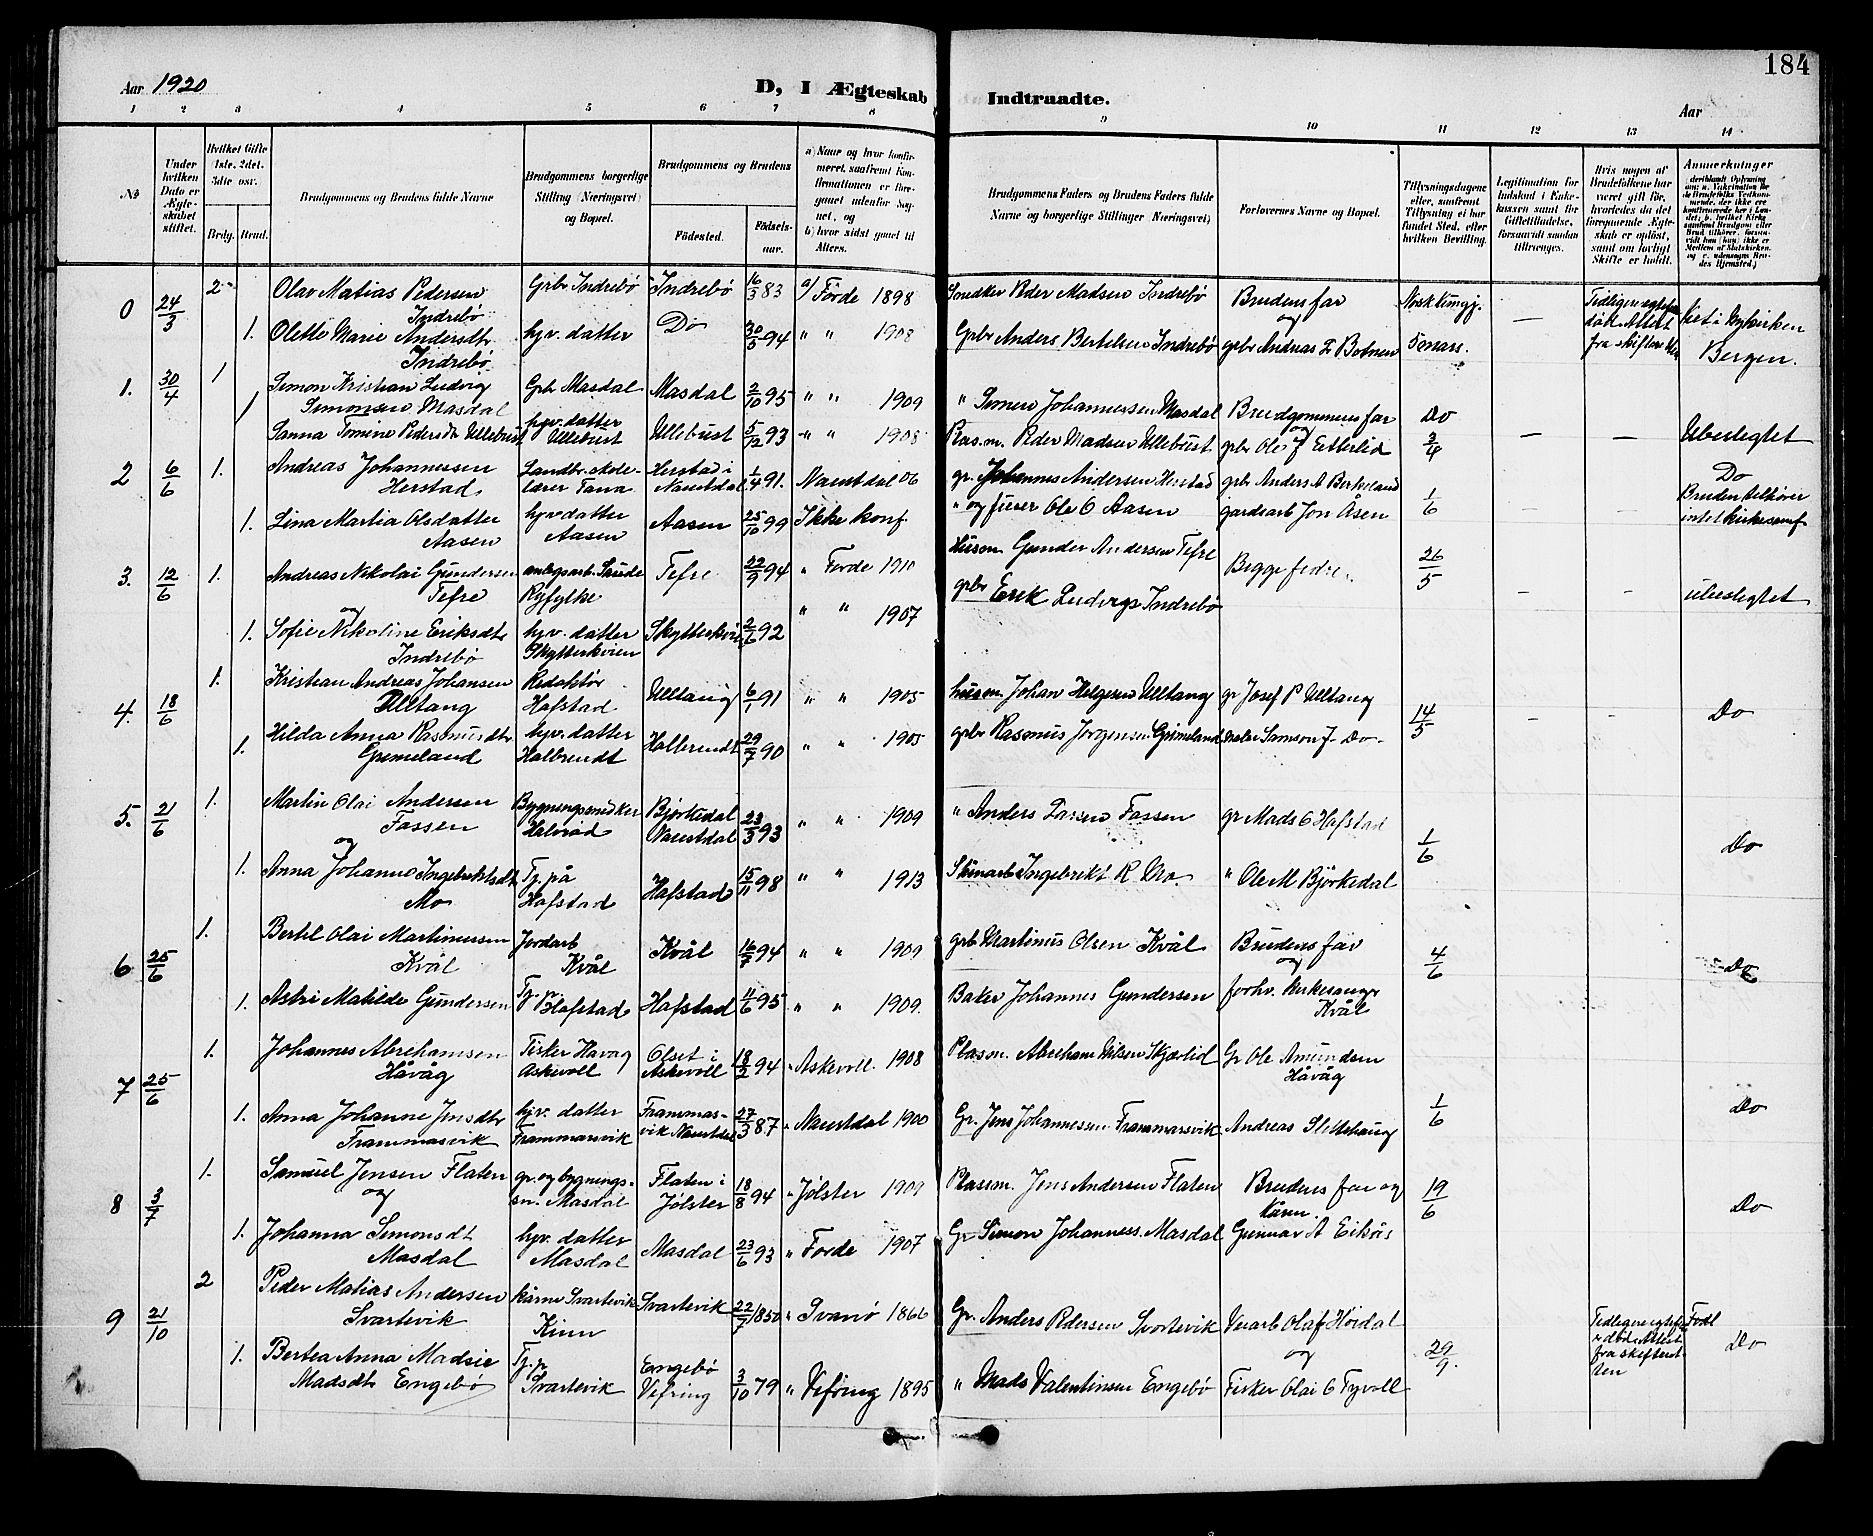 184
Aar 1920
D, I Ægteskab Indtraadte.
Aar
1 2 3 4 5 6 7 8 9 10 11 12 13 14
No
Under hvilken Dato er Ægteskabet stiftet.
Hvilket Gifte (1ste, 2det, 3die osv.
Brdg. Brud.
Brudgommens og Brudens fulde Navne
Brudgommens borgerlige Stilling (Næringsvei) og Bopæl.
Brudgommens og Brudens
Fødested.
Fødselsaar.
a) Naar og hvor konfirmeret, saafremt Konfirmationen er foregaaet udenfor Sognet, og
b) hvor sidst gaaet til Alters.
Brudgommens Faders og Brudens Faders fulde Navne og borgerlige Stillinger (Næringsvei)
Forlovernes Navne og Bopæl.
Tillysningsdagene eller, saafremt Tillysning ei har fundet Sted, efter hvilken Bevilling.
Legitimation for Indskud i Enkekassen samt for Giftetilladelse, forsaavidt saadan tiltrænges.
Hvis nogen af Brudefolkene har været gift før, hvorledes da det foregaaende Ægteskab er opløst, samt om lovligt Skifte er holdt.
Anmerkninger
0 24/3 2 Olav Matias Pedersen Indrebø Grbr Indrebø Indrebø 16/3 83 a/ Förde 1898 Snedker Peder Madsen Indrebø Brudens far og Norsk Kungj.
1. Olette Marie Andersdtr Indrebø hjv. datter Do 30/5 94 " " 1908 Grbr Anders Bertelsen Indrebø grbr Andreas L Botnen 5 mars. Bergen.
1. 30/4 1 Simon Kristian Ludvig Simonsen Masdal Grbr Masdal Masdal 2/10 95 " " 1909 " Simon Johannessen Masdal Brudgommens far og Do
1 Sanna Tomine Pedersdtr Ullebust hjv. datter Ullebust Ullebust 5/12 93 " " 1908 Plas.m. Peder Madsen Ullebust grbr Ole J Eitterlid 3/4 Ubeslegtet
2 6/6 1. Andreas Johannessen Herstad Landbr.skolelærer Tana Herstad i Naustdal 1/4 91. Naustdal 06 gr. Johannes Andersen Herstad grbr Anders A Birkeland 1/6 Do
1. Lina Martia Olsdatter Aasen hjv datter Aasen Aasen 25/10 99 Ikke konf. " og fisker Ole O Aasen gardsarb Jon Åsen Bruden tilhörer intet kirkesamf
3. 12/6 1. Andreas Nikolai Gundersen Tefre og anlegsarb. Saude Ryfylke Tefre 22/9 94 " Förde 1910 Husm. Gunder Andersen Tefre Begge fedre. 26/5 ubeslegtet
1. Sofie Nikoline Eriksdtr Indrebø hjv. datter Skytterkvien Skytterkvien 2/6 92 " " 1907 grbr Erik Ludvigs Indrebø
4. 18/6 1. Kristian Andreas Johansen Ulltang Redaktör Hafstad Ulltang 6/1 91 " " 1905 husm. Johan Helgesen Ulltang gr Josef P Ulltang 14/5 Do
1. Hilda Anna Rasmusdtr Grimeland hjv. datter Halbrendt Halbrendt 29/7 90 " " 1905 grbr Rasmus Jörgensen Grimeland maler Samson J. Do.
5. 21/6 1. Martin Olai Andersen Fassen og Bygningssnidker Halvrad Björkedal Naustdal 23/3 93 " " 1909 " Anders Larsen Fassen gr Mads O Hafstad 1/6 Do
1. Anna Johanne Ingebriktsdt Mo Tj. på Hafstad Hafstad 15/11 98 " " 1913 Stenarb Ingebrikt R Mo. " Ole M Björkedal
6 25/6 1. Bertel Olai Martinussen Kvål Jordarb Kvål Kvål 16/7 94 " " 1909 grb Martinus Olsen Kvål Brudens far og 4/6 Do
1. Astri Matilde Gundersen Tj. p. Hafstad Hafstad 4/6 95 " " 1909. Baker Johannes Gundersen forhv. kirkesanger Kvål
7 25/6 1. Johannes Abrehamsen Håvåg Fisker Håvåg Askevoll Olset i Askevoll 18/2 94 " Askevoll 1908 Plasm. Abreham Nilsen Skjærlid Gr Ole Amundsen Håvåg 1/6 Do
1. Anna Johanne Jensdtr Frammarsvik hjv. datter Frammarsvik Frammarsvik Naustdal 27/3 87 " Naustdal 1900 Gr. Jens Johannessen Frammarsvik Andreas Slettehaug
8 3/7 1. Samuel Jensen Flaten og gr. og bygningssn. Masdal Flaten i Jölster 18/8 94 " Jölster 1909 Plassm. Jens Andersen Flaten Brudens far og 19/6 Do
1. Johanna Simonsdt Masdal hjv. datter Masdal Masdal 23/6 93 " Förde 1907 Gr Simon Johanness. Masdal kårm. Gunnar A Eikås
9 21/10 2 Peder Matias Andersen Svartevik kårm Svartevik Kinn Svartevik 22/7 1850 " Svanö 1866 Gr. Anders Pedersen Svartevik Veiarb Olaf Höidal og 29/9. Do
1. Bertea Anna Madsie Madsdt Engebø Tj. p. Svartevik Engebø Vefring 3/10 79 " Vefring 1895 " Mads Valentinsen Engebø Fisker Olai O Tyvoll